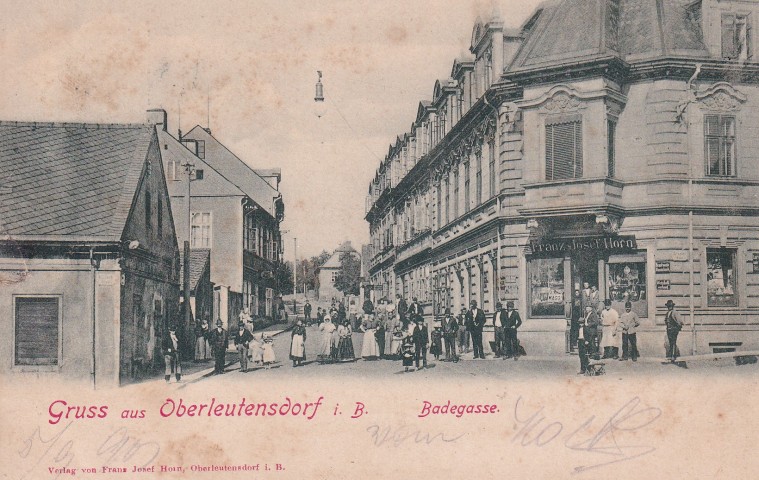 Franz Josef Horn
Gruss aus Oberleutensdorf i. B. Badegasse.
Verlag von Franz Josef Horn, Oberleutensdorf i. B.